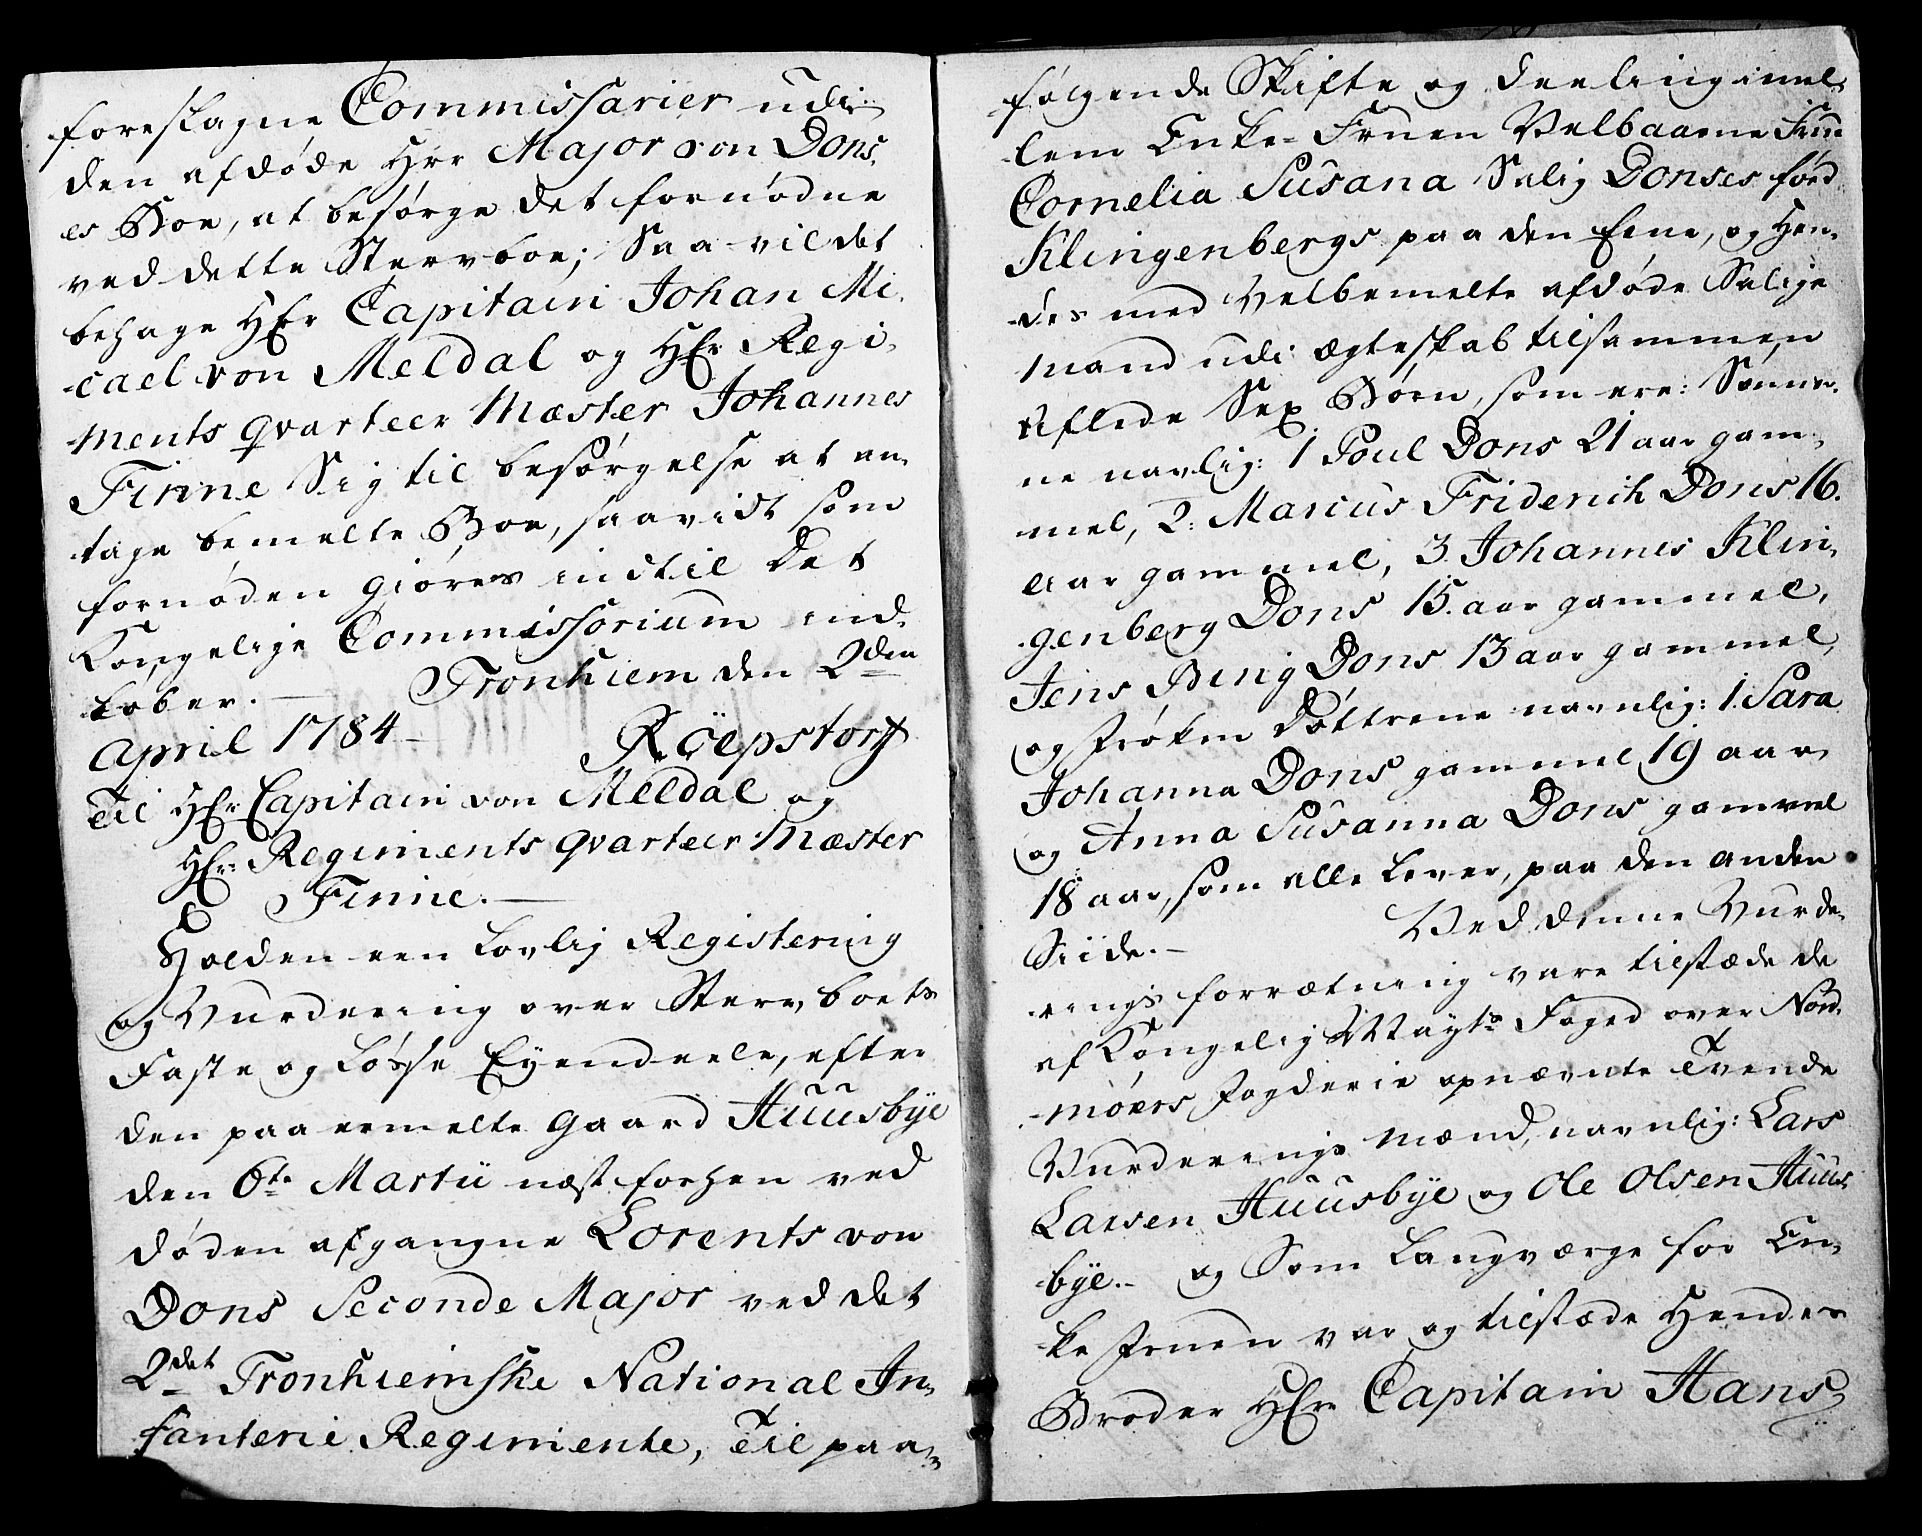 foreslagne Commissarier udi
den afdøde Hrr Major von Dons,
es Boe, at besørge det fornødne
ved dette Stervboe; Saa vil det
behage HEr Capitain Johan Mi,
cael von Meldal og HEr Regi,
ments qvarteer Mæster Johannes
Finne Sig til besørgelse at an,
tage bemelte Boe, saavidt som
fornøden giøres indtil Det
Kongelige Commissorium ind,
løber. — Tronhiem den 2den
April 1784 — Röepstorff
Til HEr Capitain von Meldal og
HEr: Regiments qvarteer Mæster
Finne. —
Holden een Lovlig Registering
og Vurdering over Stervboets
Faste og Løsse Eyendeele, efter
den paa ermelte Gaard Huusbye
den 6te Martii næst forhen ved
døden afgangne Lorents von
Dons Seconde Major ved det
2det Tronhiemske National In,
fanterie Regimente, Til paa,
følgende Skifte og deeling imel,
lem Enke-Fruen Velbaarne Frue
Cornelia Susana Salig Donses fød
Klingenbergs paa den Eene, og Hen,
des med Velbemelte afdøde Salige
Mand udi ægteskab tilsammen
Aflede Sex Børn, som ere: Sønner,
ne navlig: 1 Poul Dons 21 aar gam,
mel, 2: Marcus Friderich Dons 16.
Aar gammel, 3. Johannes Klin,
genberg Dons 15. aar gammel,
Jens Bing Dons 13 aar gammel,
og Frøken Døttrene navnlig: 1. Sara
Johanna Dons gammel 19 aar,
og Anna Susanna Dons gammel
18 aar, som alle Lever, paa den anden
Siide. — Ved denne Vurde,
rings forrætning vare tilstæde de
af Kongelig Mayts Foged over Nord,
møers Fogderie opnævnte Tvende
Vurderings Mænd, navnlig: Lars
Larsen Huusbye og Ole Olsen Huus,
bye. — og Som Laugværge for En,
ke Fruen var og tilstæde Hendes
Broder HEr Capitain Hans